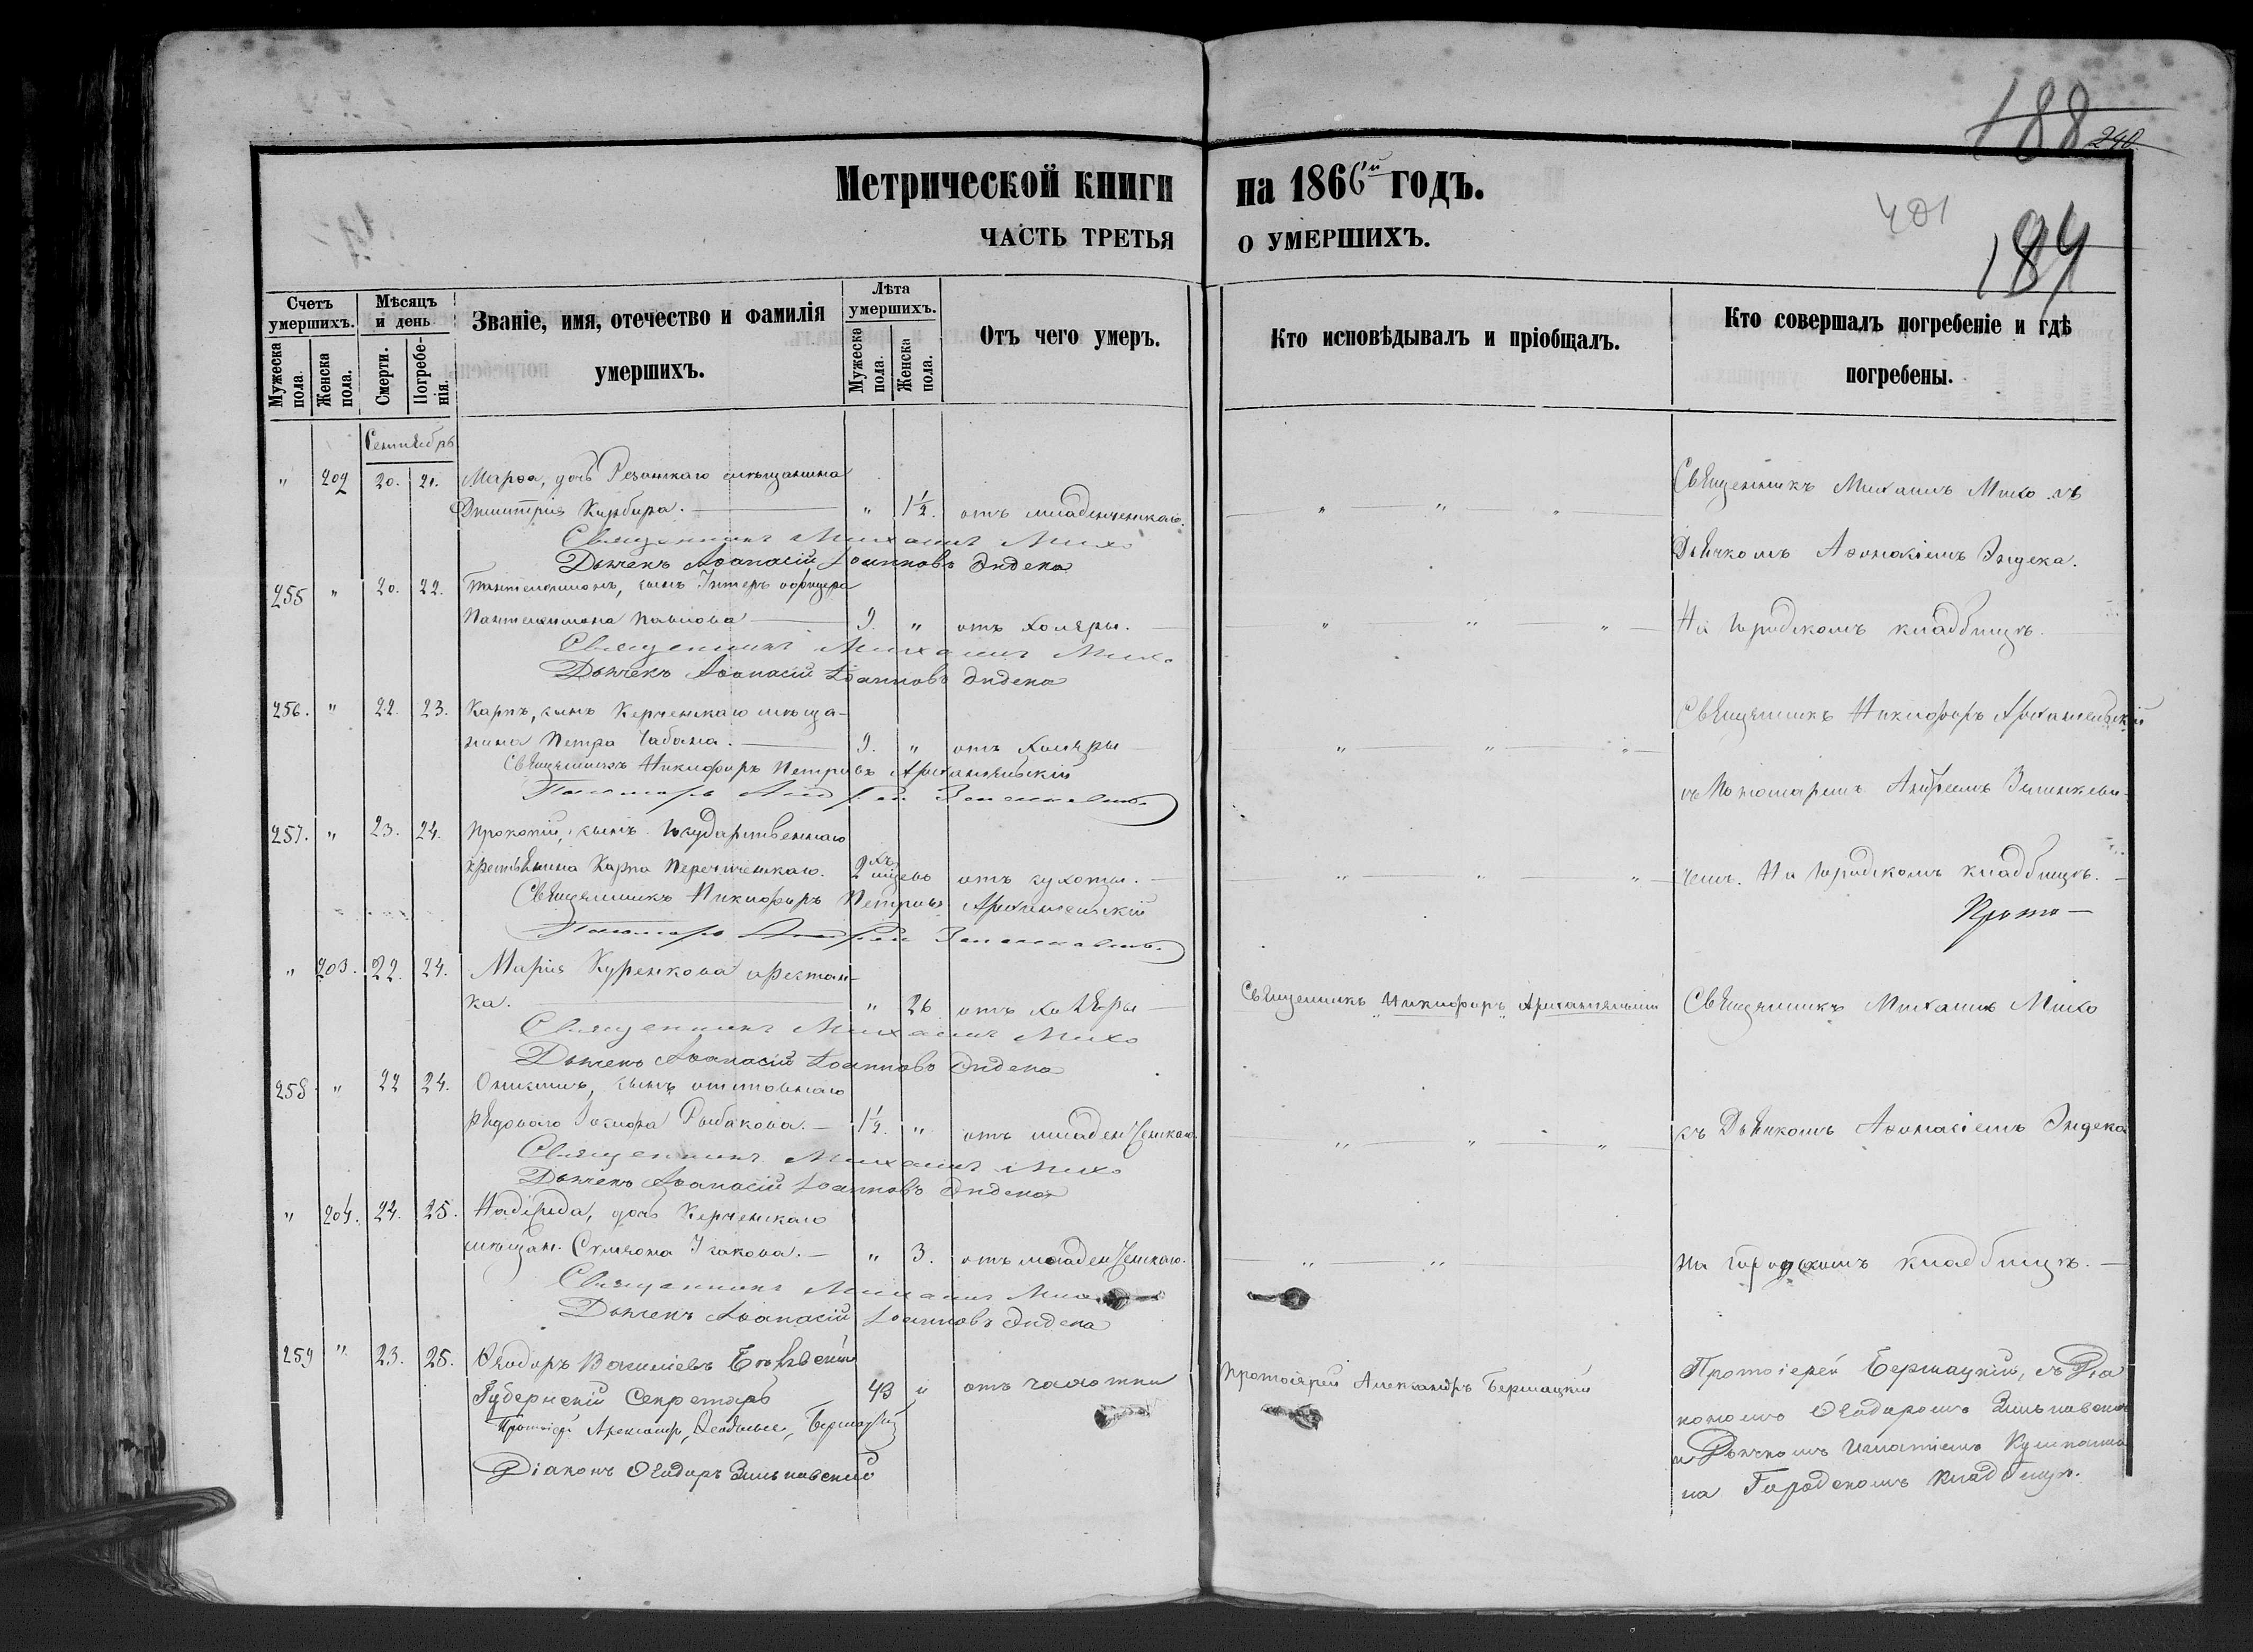 188 240
401
184
Метрической книги на 1866й годъ.
ЧАСТЬ ТРЕТЬЯ О УМЕРШИХЪ.
Счетъ умершихъ.
Мужеска пола.
Женска пола.
Мѣсяцъ и день
Смерти.
Погребенія.
Званіе, имя, отечество и фамилія
умершихъ.
Лѣта умершихъ.
Мужеска пола.
Женска пола.
Отъ чего умеръ.
Кто исповѣдывалъ и пріобщалъ.
Кто совершалъ погребеніе и гдѣ
погребены.
Сентябрь
" 202 20. 21. Марѳа, дочь мѣщанина
Священникъ Михаилъ Михо съ
Дмитрія " 1½. отъ младенческаго.
Священникъ Михаилъ Михо
Дьячкомъ Аѳонасіемъ Эндека.
Дьячекъ Аѳанасій Іоанновъ Эндека
255 " 20. 22. Пантелеимонъ, сынъ Унтеръ офицера
Пантелеимона Павлова 9. " отъ холеры.
На городскомъ кладбищѣ.
Священникъ Михаилъ Михо
Дьячекъ Аѳанасій Іоанновъ Эндека
256. " 22. 23. Карпъ, сынъ Керченскаго мѣща-
Священникъ Никифоръ Архангельскій
нина Петра Чабана. 9. " отъ холеры
Священникъ Никифоръ Петровъ Архангельскій
съ Пономаремъ Андреемъ
Пономарь Андрей
257. " 23. 24. Прокопій, сынъ Государственнаго
крестьянина Карпа 2хъ отъ сухоты.
чемъ. На городскомъ кладбищѣ.
Священникъ Никифоръ Петровъ Архангельскій
Прото-
Пономарь Андрей
" 203. 22. 24. Марія Куренкова арестан-
ка. " 26 отъ холеры
Священникъ Никифоръ Архангельскій
Священникъ Михаилъ Михо
Священникъ Михаилъ Михо
Дьячекъ Аѳанасій Іоанновъ Эндека
258 " 22 24. сынъ отставнаго
рядоваго Рыбакова. 1½. " отъ младенческаго
съ Дьячкомъ Аѳонасіемъ Эндека
Священникъ Михаилъ Михо
Дьячекъ Аѳанасій Іоанновъ Эндека
" 204. 24. 25. Надежда, дочь Керченскаго
мѣщан. Симеона Исакова. " 3. отъ младенческаго.
На городскомъ кладбищѣ.
Священникъ Михаилъ
Дьячекъ Аѳанасій Іоанновъ Эндека
259 " 23. 25. Ѳеодоръ Васильевъ
Губернскій Секретарь 43 " отъ чахотки
Протоіерей Александръ Бершацкій
Протоіерей Бершацкій, съ Діа
кономъ Ѳеодоромъ
и Дьячкомъ Игнатіемъ
на Городскомъ кладбищѣ.
Діаконъ Ѳеодоръ